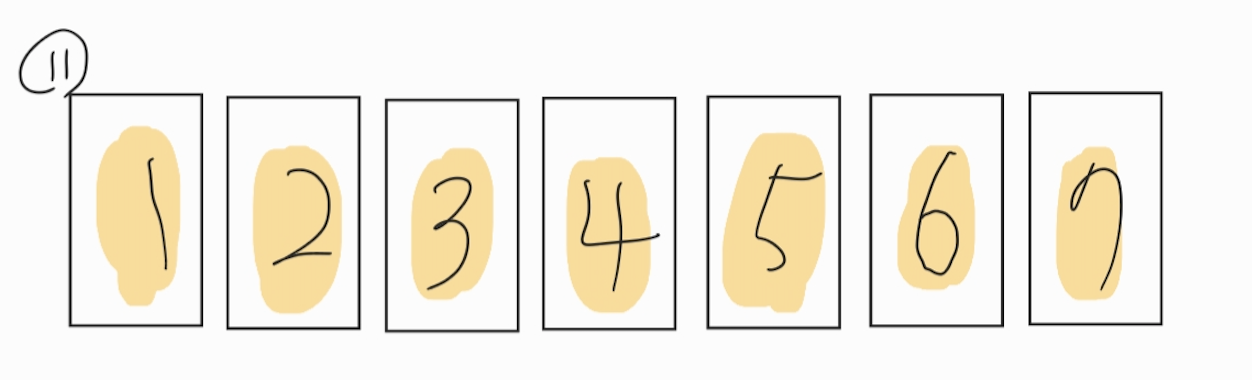 ⑪
1 2 3 4 5 6 7